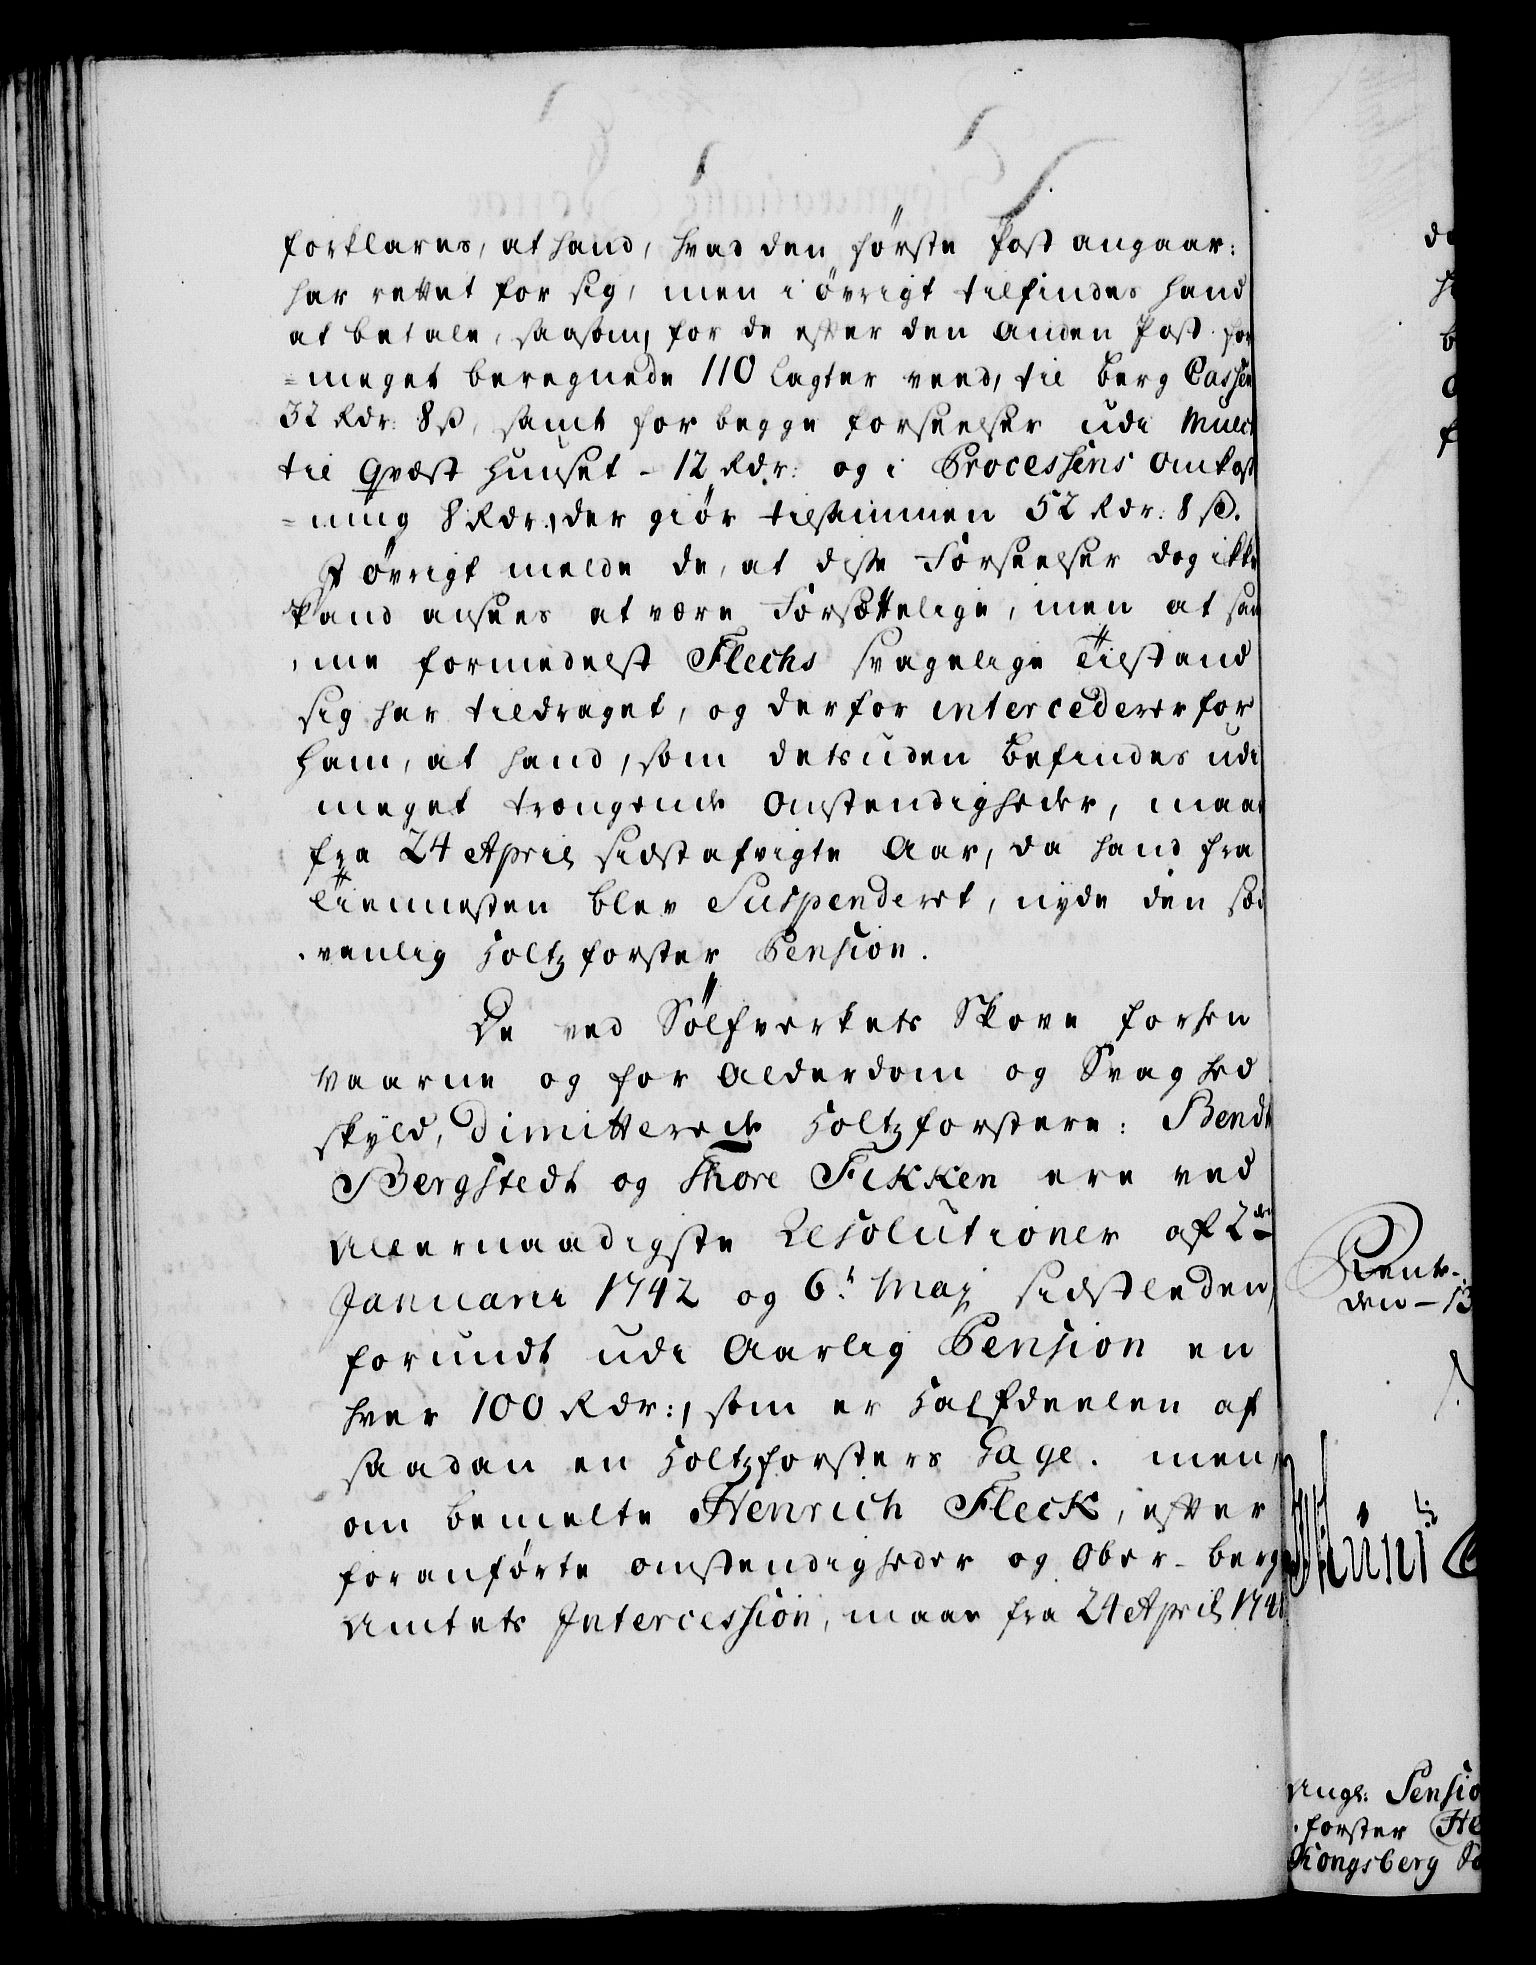 forklares, at hand, hvad den første Post angaar:
har rettet for sig, men i øvrigt tilfindes hand
at betale, saasom, for de efter den Anden Post for
=meget beregnede 110 Lagter veed, til Berg Cassen
32 Rdr: 8 ß, samt for begge forseelser udi Mulct
til Qvæst Huuset - 12 Rdr: og i Processens Omkost
=ning 8 Rdr:, der giør tilsammen 52 Rdr: 8 ß.
I øvrigt melde de, at disse Forseelser dog ikke
kand ansees at være Forsættelige, men at sam
me formedelst Flechs svagelige Tilstand
sig har tildraget, og derfor intercederer for
ham, at hand, som detsuden befindes udi
meget trængende Omstendigheder, maae
fra 24 April sidstafvigte Aar, da hand fra
Tiennesten blev Suspenderet, nyde den sæd
vanlig Holtzforster Pension.
De ved Sølfverkets Skove forhen
Værne og for Alderdom og Svaghed
skyld, dimitterede Holtzforstere: Bendt
Bergstedt og Thore Fikken ere ved
Allernaadigste Resolutioner af 2den
Januarii 1742 og 6t Maj sidstleden,
forundt udi Aarlig Pension en
hver 100 Rdr:, som er Halfdeelen af
saadan en Holtzforsters Gage. men,
om bemelte Henrich Fleck, efter
foranførte omstendigheder og Ober-Berg
Amtets Intercession, maae fra 24 April 174
Rente-
den - 13
Angl: Pensio
forster He
Kongsberg